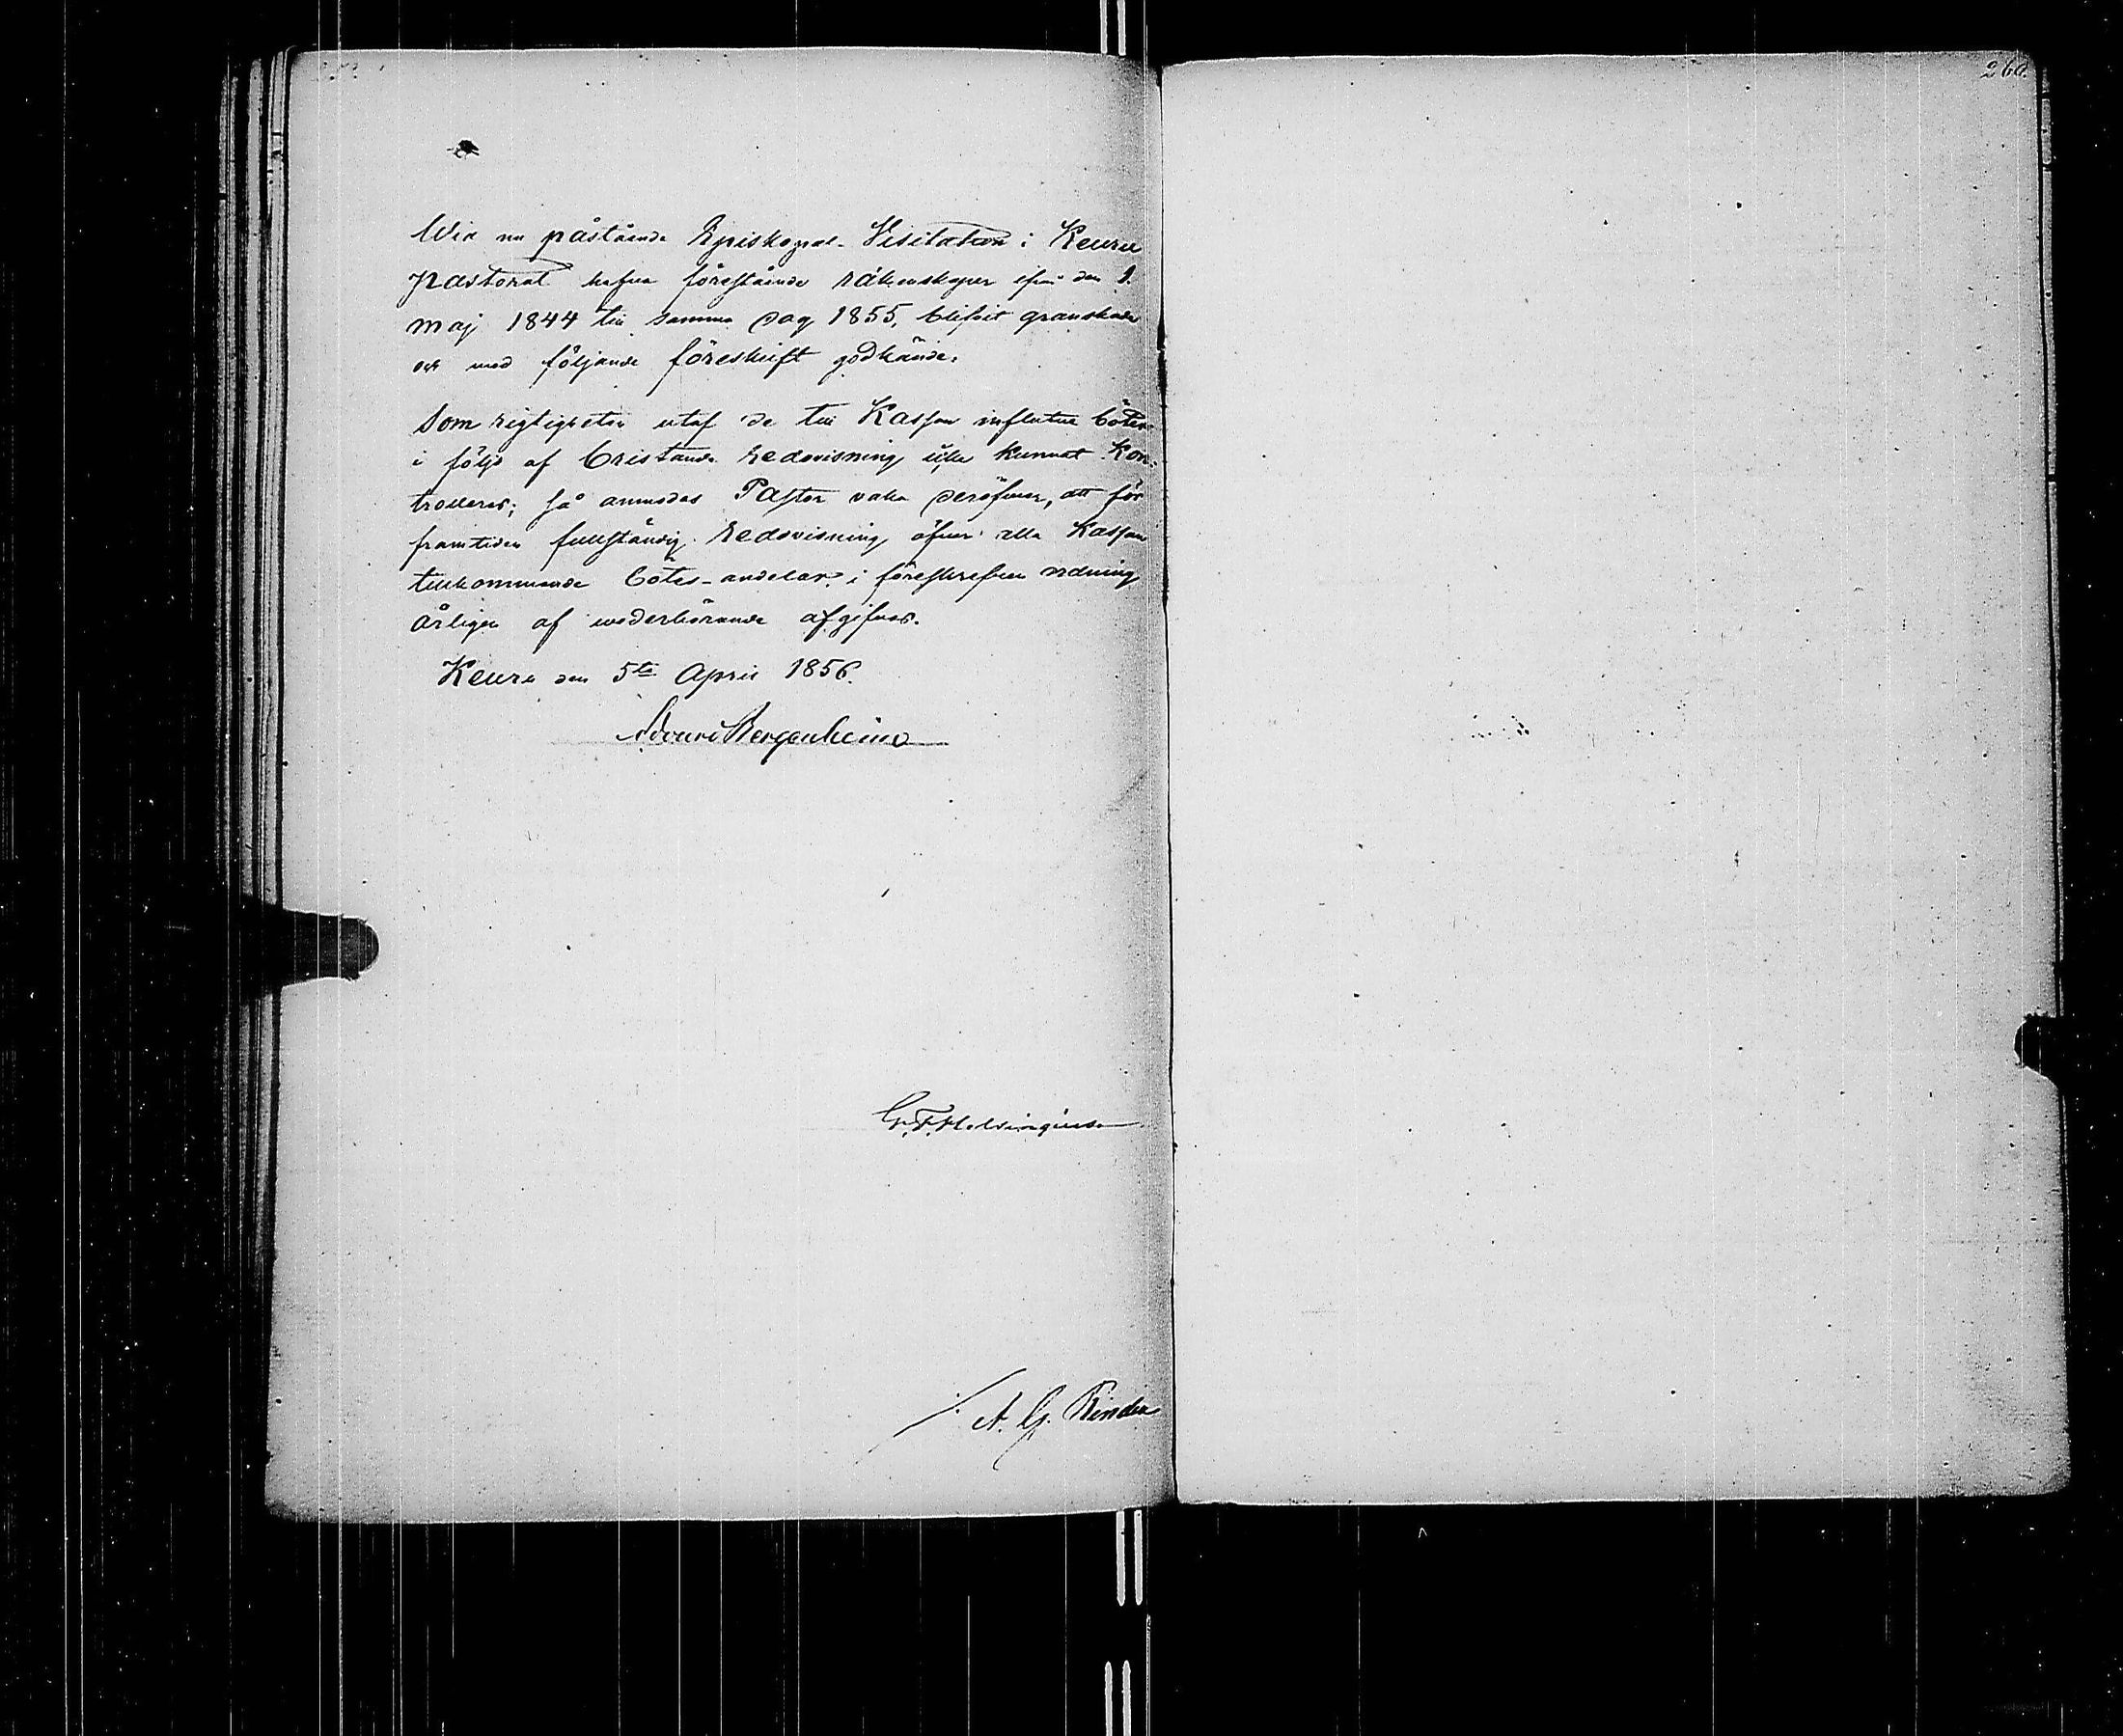 260.
Wid nu påstående Episkopal-Visitation i Keuru
pastorat hafva förestående räkenskaper ifrån den 1.
maj 1844 till samma dag 1855, blifvit granskade
och med följande föreskrift godkände.
Som rigtigheten utaf de till Kassan influtne böter
i följd af bristande redovisning icke kunnat kon-
trolleras; så anmodas Pastor vaka deröfver, att för
framtiden fullständig redovisning öfver alla Kassan
tillkommande bötes-andelar i föreskrefven ordning
årligen af wederbörande afgifves.
Keuru den 5te April 1856.
Edvard Bergenheim
G. F. Helsingius
A. G. Rinda